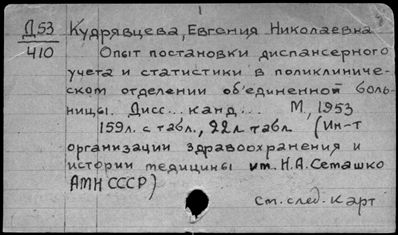 1
Д53 Кудрявцева, Евгения Николаевна
410 Опыт постановки диспансерного
учета и статистики в поликлиниче-
ском отделении об'единенной боль-
ницы. Дисс... канд... М., 1953
159л. с табл., 22л табл. (Ин-т
организации здравоохранения и
истории медицины им. Н.А. Семашко
АМН СССР)
См. след. карт